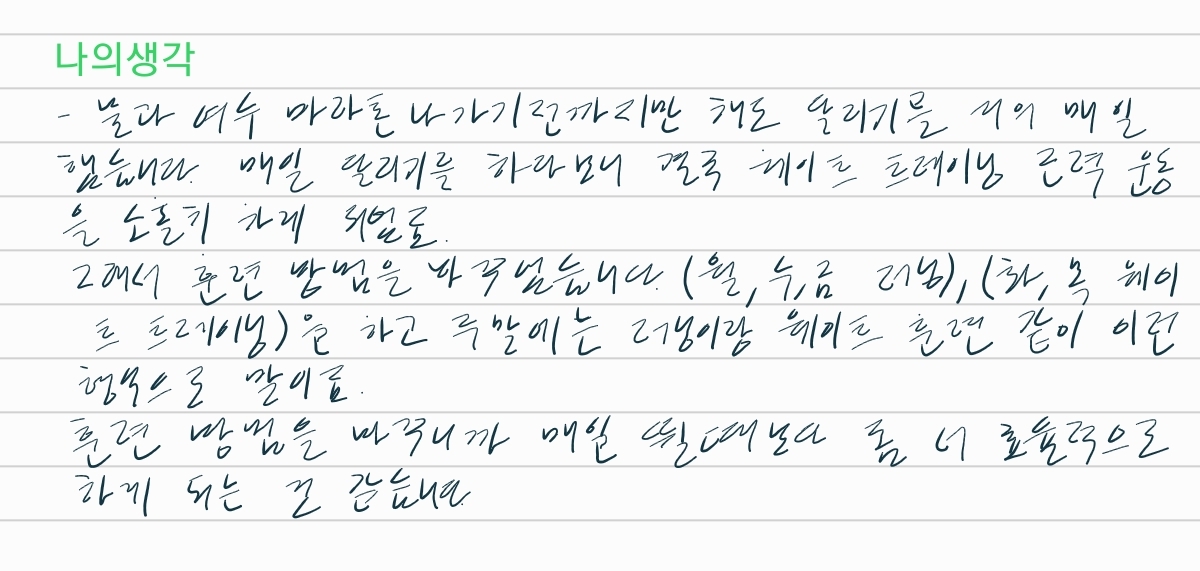 나의생각
- 늘과 여수 마라톤 나가기전까지만 해도 달리기를 거의 매일
했습니다. 매일 달리기를 하다보니 결국 웨이트 트레이닝 근력 운동
을 소홀히 하게 되었죠.
그래서 훈련 방법을 바꾸었습니다. (월, 수, 금 러닝), (화, 목 웨이
트 트레이닝)을 하고 주말에는 러닝이랑 웨이트 훈련 같이 이런
형식으로 말이죠.
훈련 방법을 바꾸니까 매일 뛸때보다 좀 더 효율적으로
하게 되는 것 같습니다.